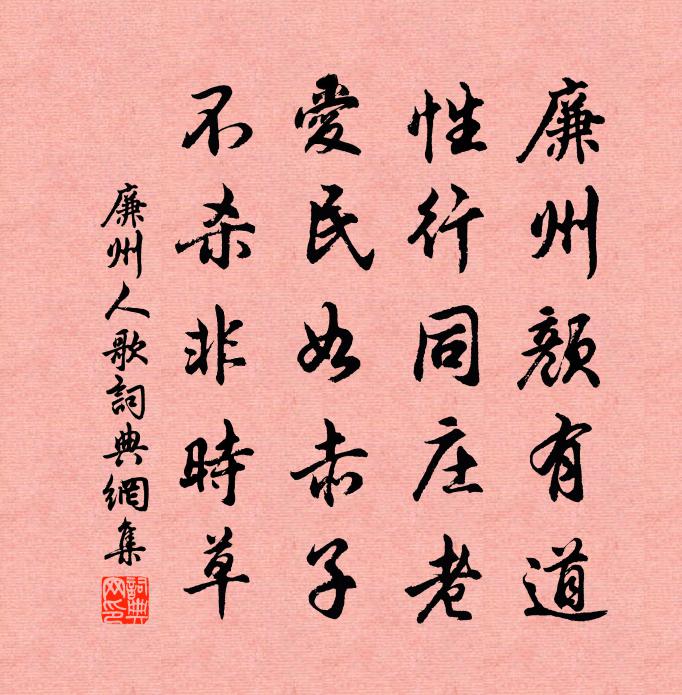 廉州顏有道
性行同庄老
愛民如赤子
不杀非時草
廉州人歌詞典網集
詞典網印